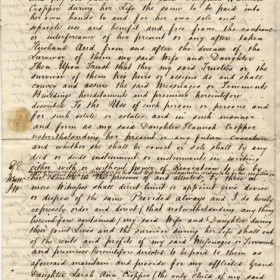 Cropper during her Life the same to be paid into
her own hands to and for her own sole and
separate use and benefit and free from the controul
or interference of her present or any after taken
Husband And from and after the decease of the
Survivor of them my said Wife and Daughter
Then Upon Trust that they my said Trustees or the
survivor of them his heirs or assigns do and shall
convey and assure the said Messuages or Tenements
Buildings hereditaments and premises hereinbefore
devised To the Use of such person or persons and
for such estate or estates and in such manner
and form as my said Daughter Hannah Cropper
notwithstanding her present or any future Coverture
and whether she shall be covert or sole shall by any
deed or deeds instrument or instruments in writing
with or without power of Revocation
two or
more Witnesses shall direct limit or appoint give devise
or dispose of the same Provided always and I do hereby
expressly order and direct that notwithstanding any thing
hereinbefore contained my said Wife and Daughter during
their joint Lives and the survivor during her Life shall out
of the rents and profits of my said Messuages or Tenements
and premises hereinbefore devised
maintain and provide for my affectionate Grand
Daughter Sarah Ann Cropper (the only Child of my said